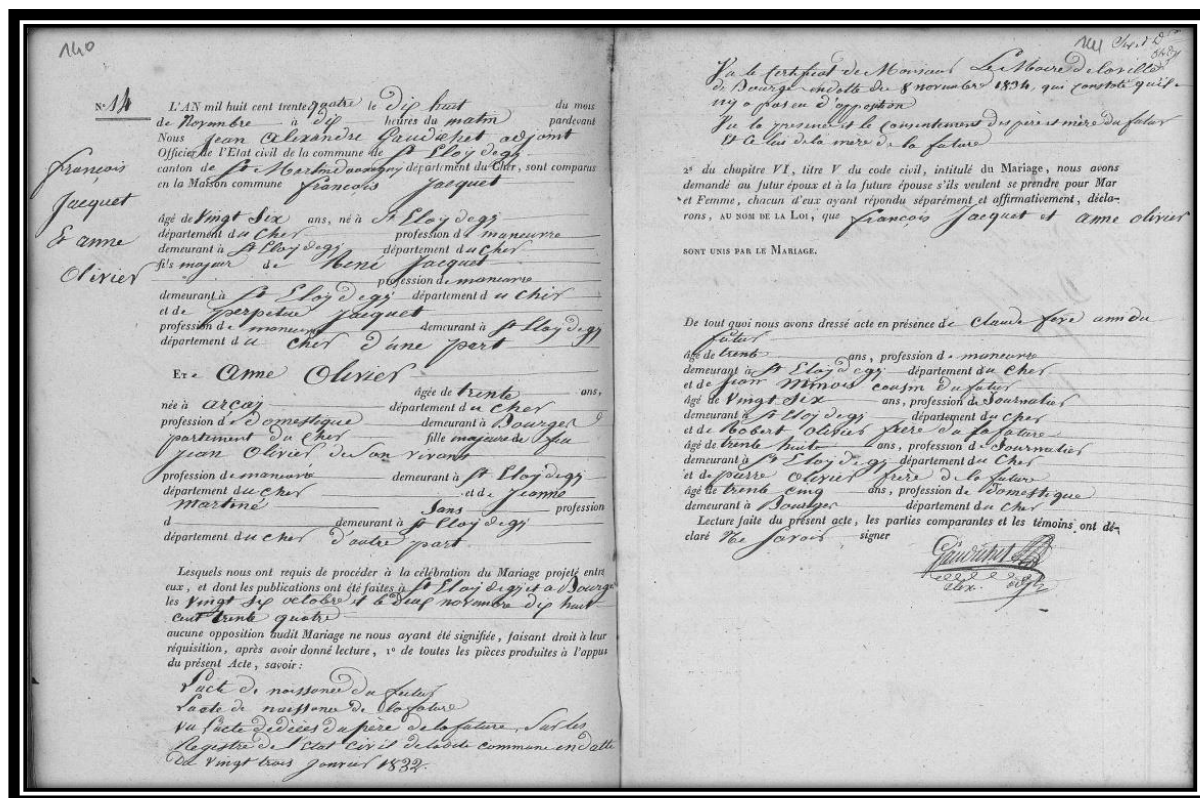 140
N.º 14
François
Jacquet
Et anne
Olivier
L'AN mil huit cent trente quatre le dix huit du mois
de Novembre à dix heures du matin pardevant
Nous Jean Alexandre Gaudichet adjoint
Officier de l'Etat civil de la commune de St Eloy de gy
canton de St Martin dauxigny département du Cher, sont comparus
en la Maison commune françois Jacquet
âgé de Vingt Six ans, né à St Eloy de gy
département du Cher profession de maneuvre
demeurant à St Eloy de gy département du Cher
fils majeur de René Jacquet
profession de maneuvre
demeurant à St Eloy de gy département du Cher
et de perpetue Jacquet
profession de maneuvre demeurant à St Eloy de gy
département du Cher d'une part
Et e Anne Olivier
âgée de trente ans,
née à arcay département du Cher
profession de domestique demeurant à Bourges d
partement du Cher fille majeure de feu
Jean Olivier de son vivant
profession de maneuvre demeurant à St Eloy de gy
département du Cher et de Jeanne
Martine Sans profession
d demeurant à St Eloy de gy
département du Cher d'autre part
Lesquels nous ont requis de procéder à la célébration du Mariage projeté entre
eux, et dont les publications ont été faites à St Eloy de gy et a Bourge
les Vingt Six octobre et le deux novembre dix huit
cent trente quatre
aucune opposition audit Mariage ne nous ayant été signifiée, faisant droit à leur
réquisition, après avoir donné lecture, 1º de toutes les pièces produites à l'appui
du présent Acte, savoir:
L'acte de naissance du futur
L'acte de naissance de la future
Vu l'acte dedicès du père de la future, Sur les
Registre de l'état civil deladite commune en datte
du Vingt trois Janvier 1832.
141
Vu le Certificat de Monsieur Le Maire de la ville
de Bourge en datte du 8 novembre 1834, qui constate qu'il
ny a pas eu d'opposition
Vu la presence et le consentement des père et mère du futur
Et Celui de la mère de la future
2º du chapitre VI, titre V du code civil, intitulé du Mariage, nous avons
demandé au futur époux et à la future épouse s'ils veulent se prendre pour Mar
et Femme, chacun d'eux ayant répondu séparément et affirmativement, décla-
rons, AU NOM DE LA LOI, que françois Jacquet et anne Olivier
SONT UNIS PAR LE MARIAGE.
De tout quoi nous avons dressé acte en présence de Claude fève ami du
futur
âgé de trente ans, profession de maneuvre
demeurant à St Eloy de gy département du Cher
et de Jean Minois cousin du futur
âgé de Vingt Six ans, profession de Journalier
demeurant à St Eloy de gy département du Cher
et de Robert Olivier frère de la future
âgé de trente huit ans, profession de Journalier
demeurant à St Eloy de gy département du Cher
et de pierre Olivier frère de la future
âgé de trente cinq ans, profession de domestique
demeurant à Bourges département du Cher
Lecture faite du présent acte, les parties comparantes et les témoins ont dé-
claré Ne Savoir signer
Gaudichet
alex.